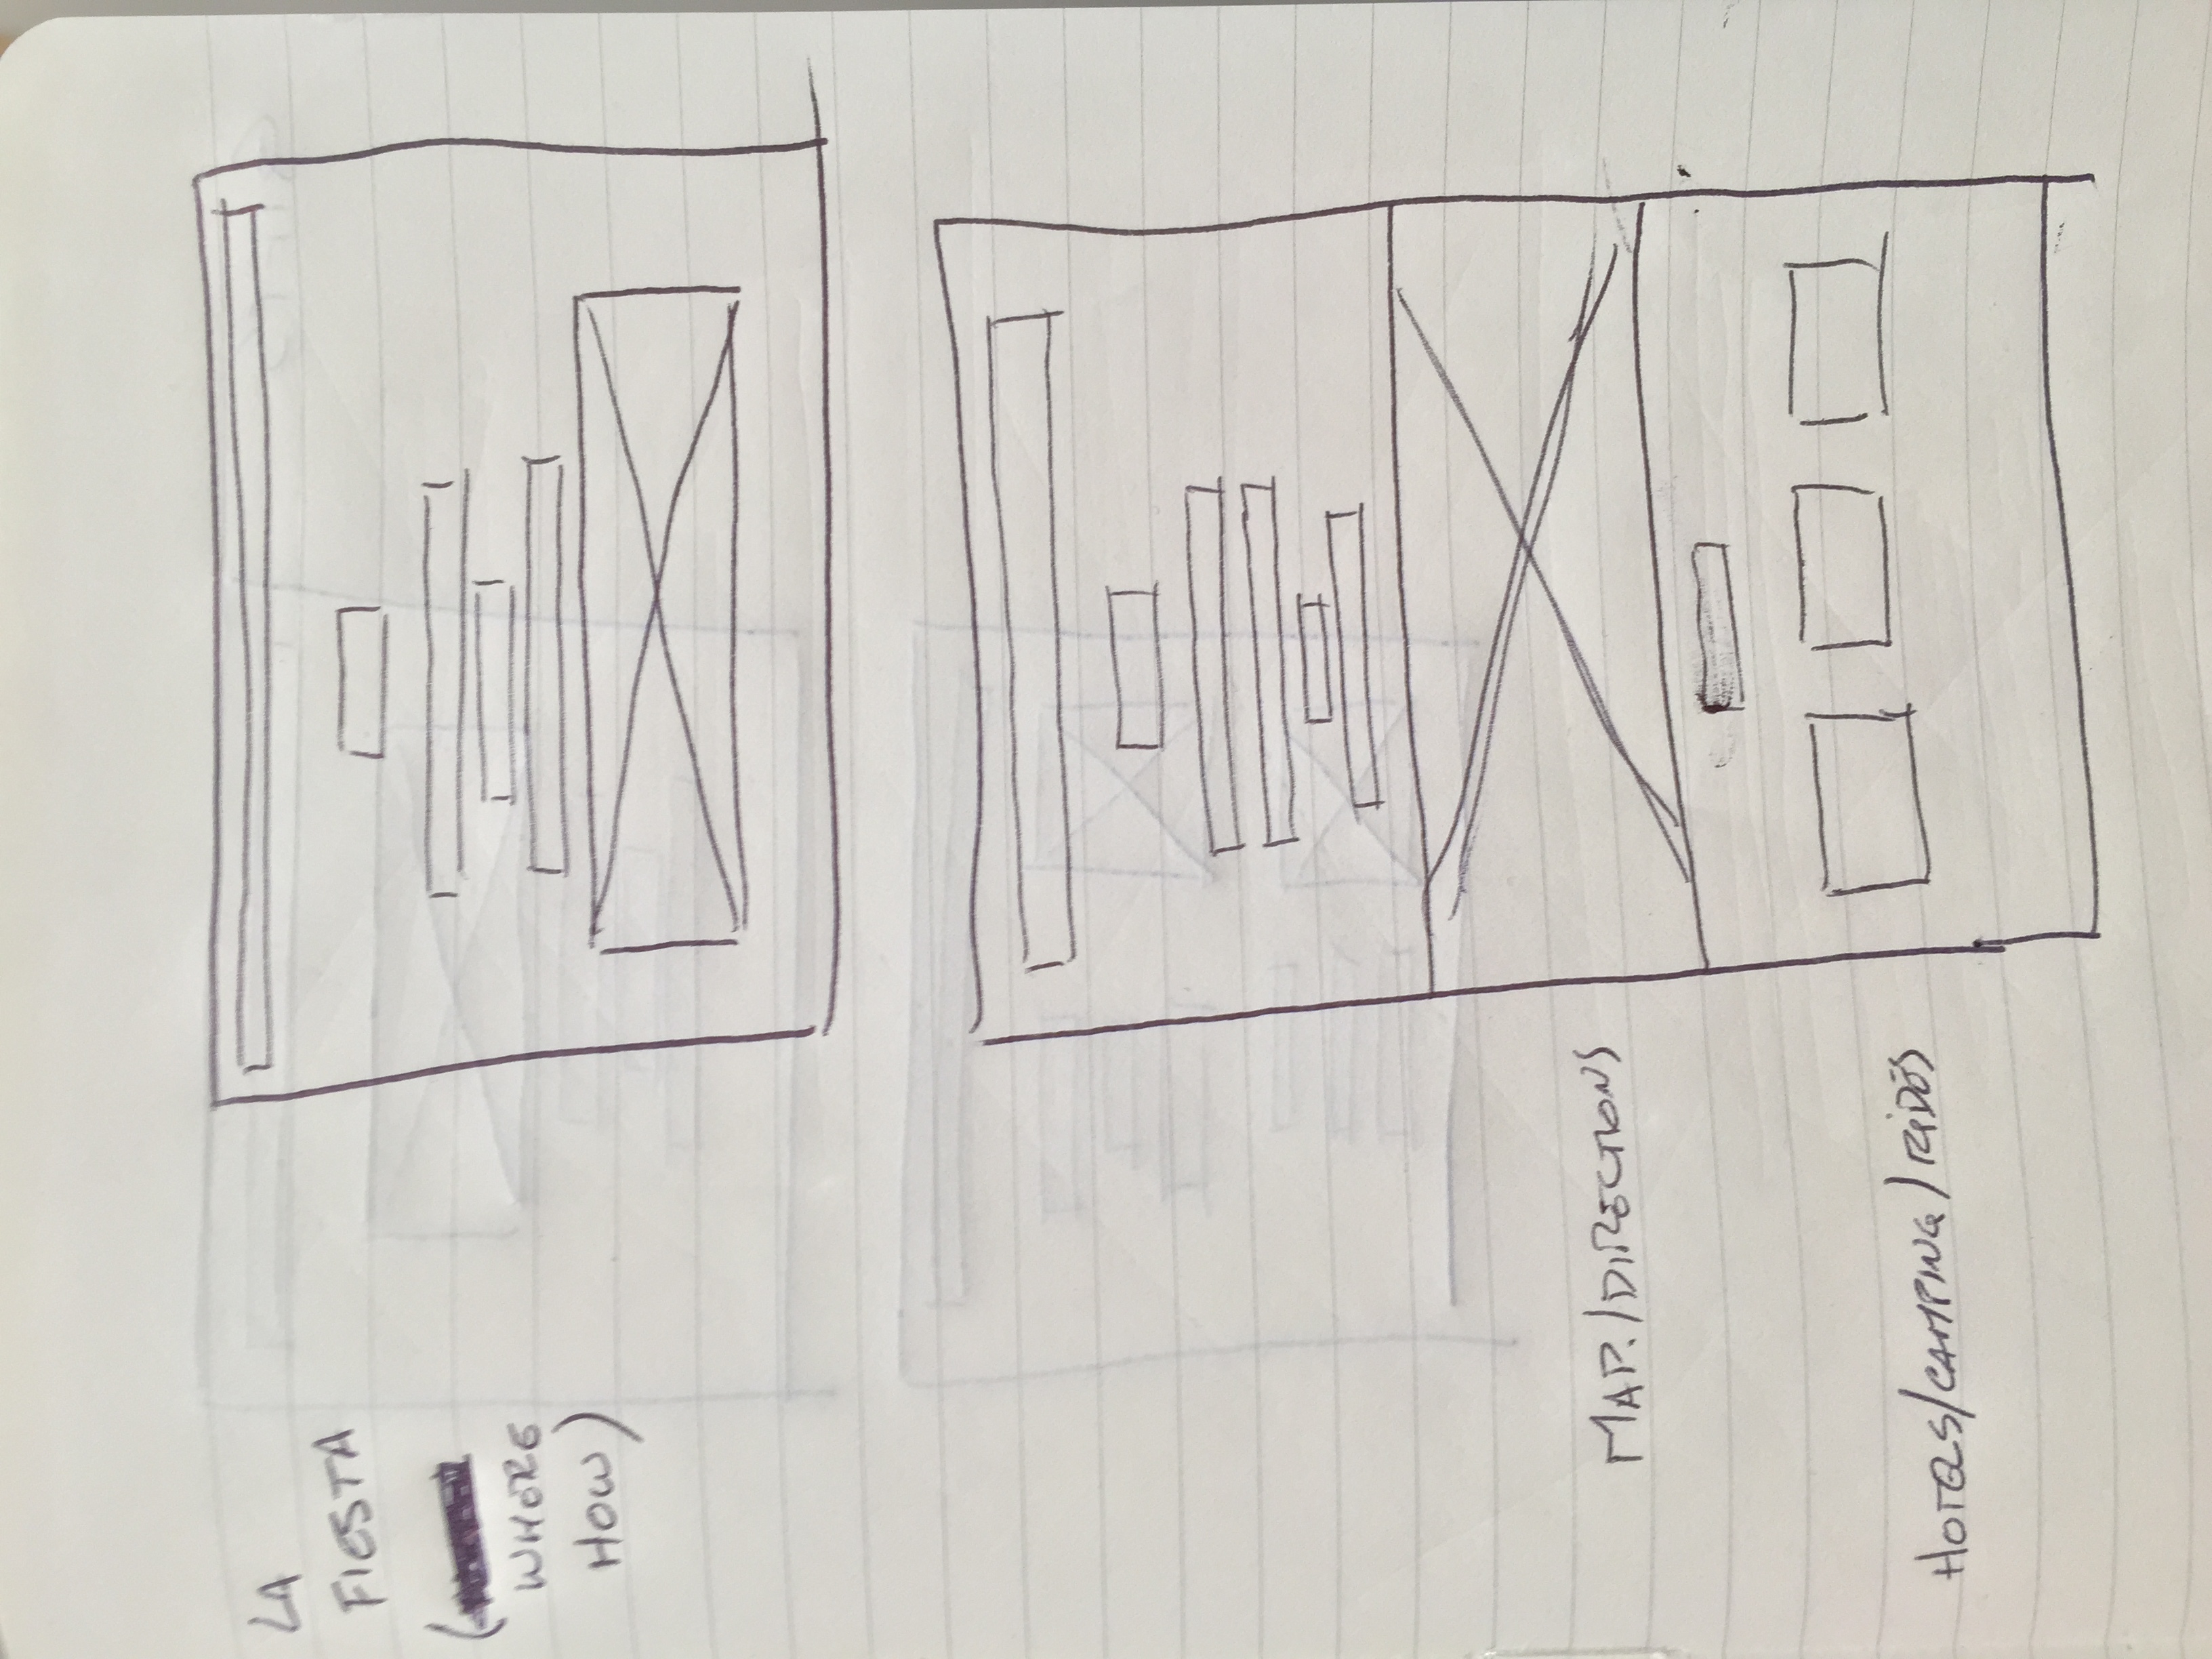 LA
FIESTA
(
WHERE
HOW)
MAP./DIRECTIONS
HOTELS/CAMPING/RIDES